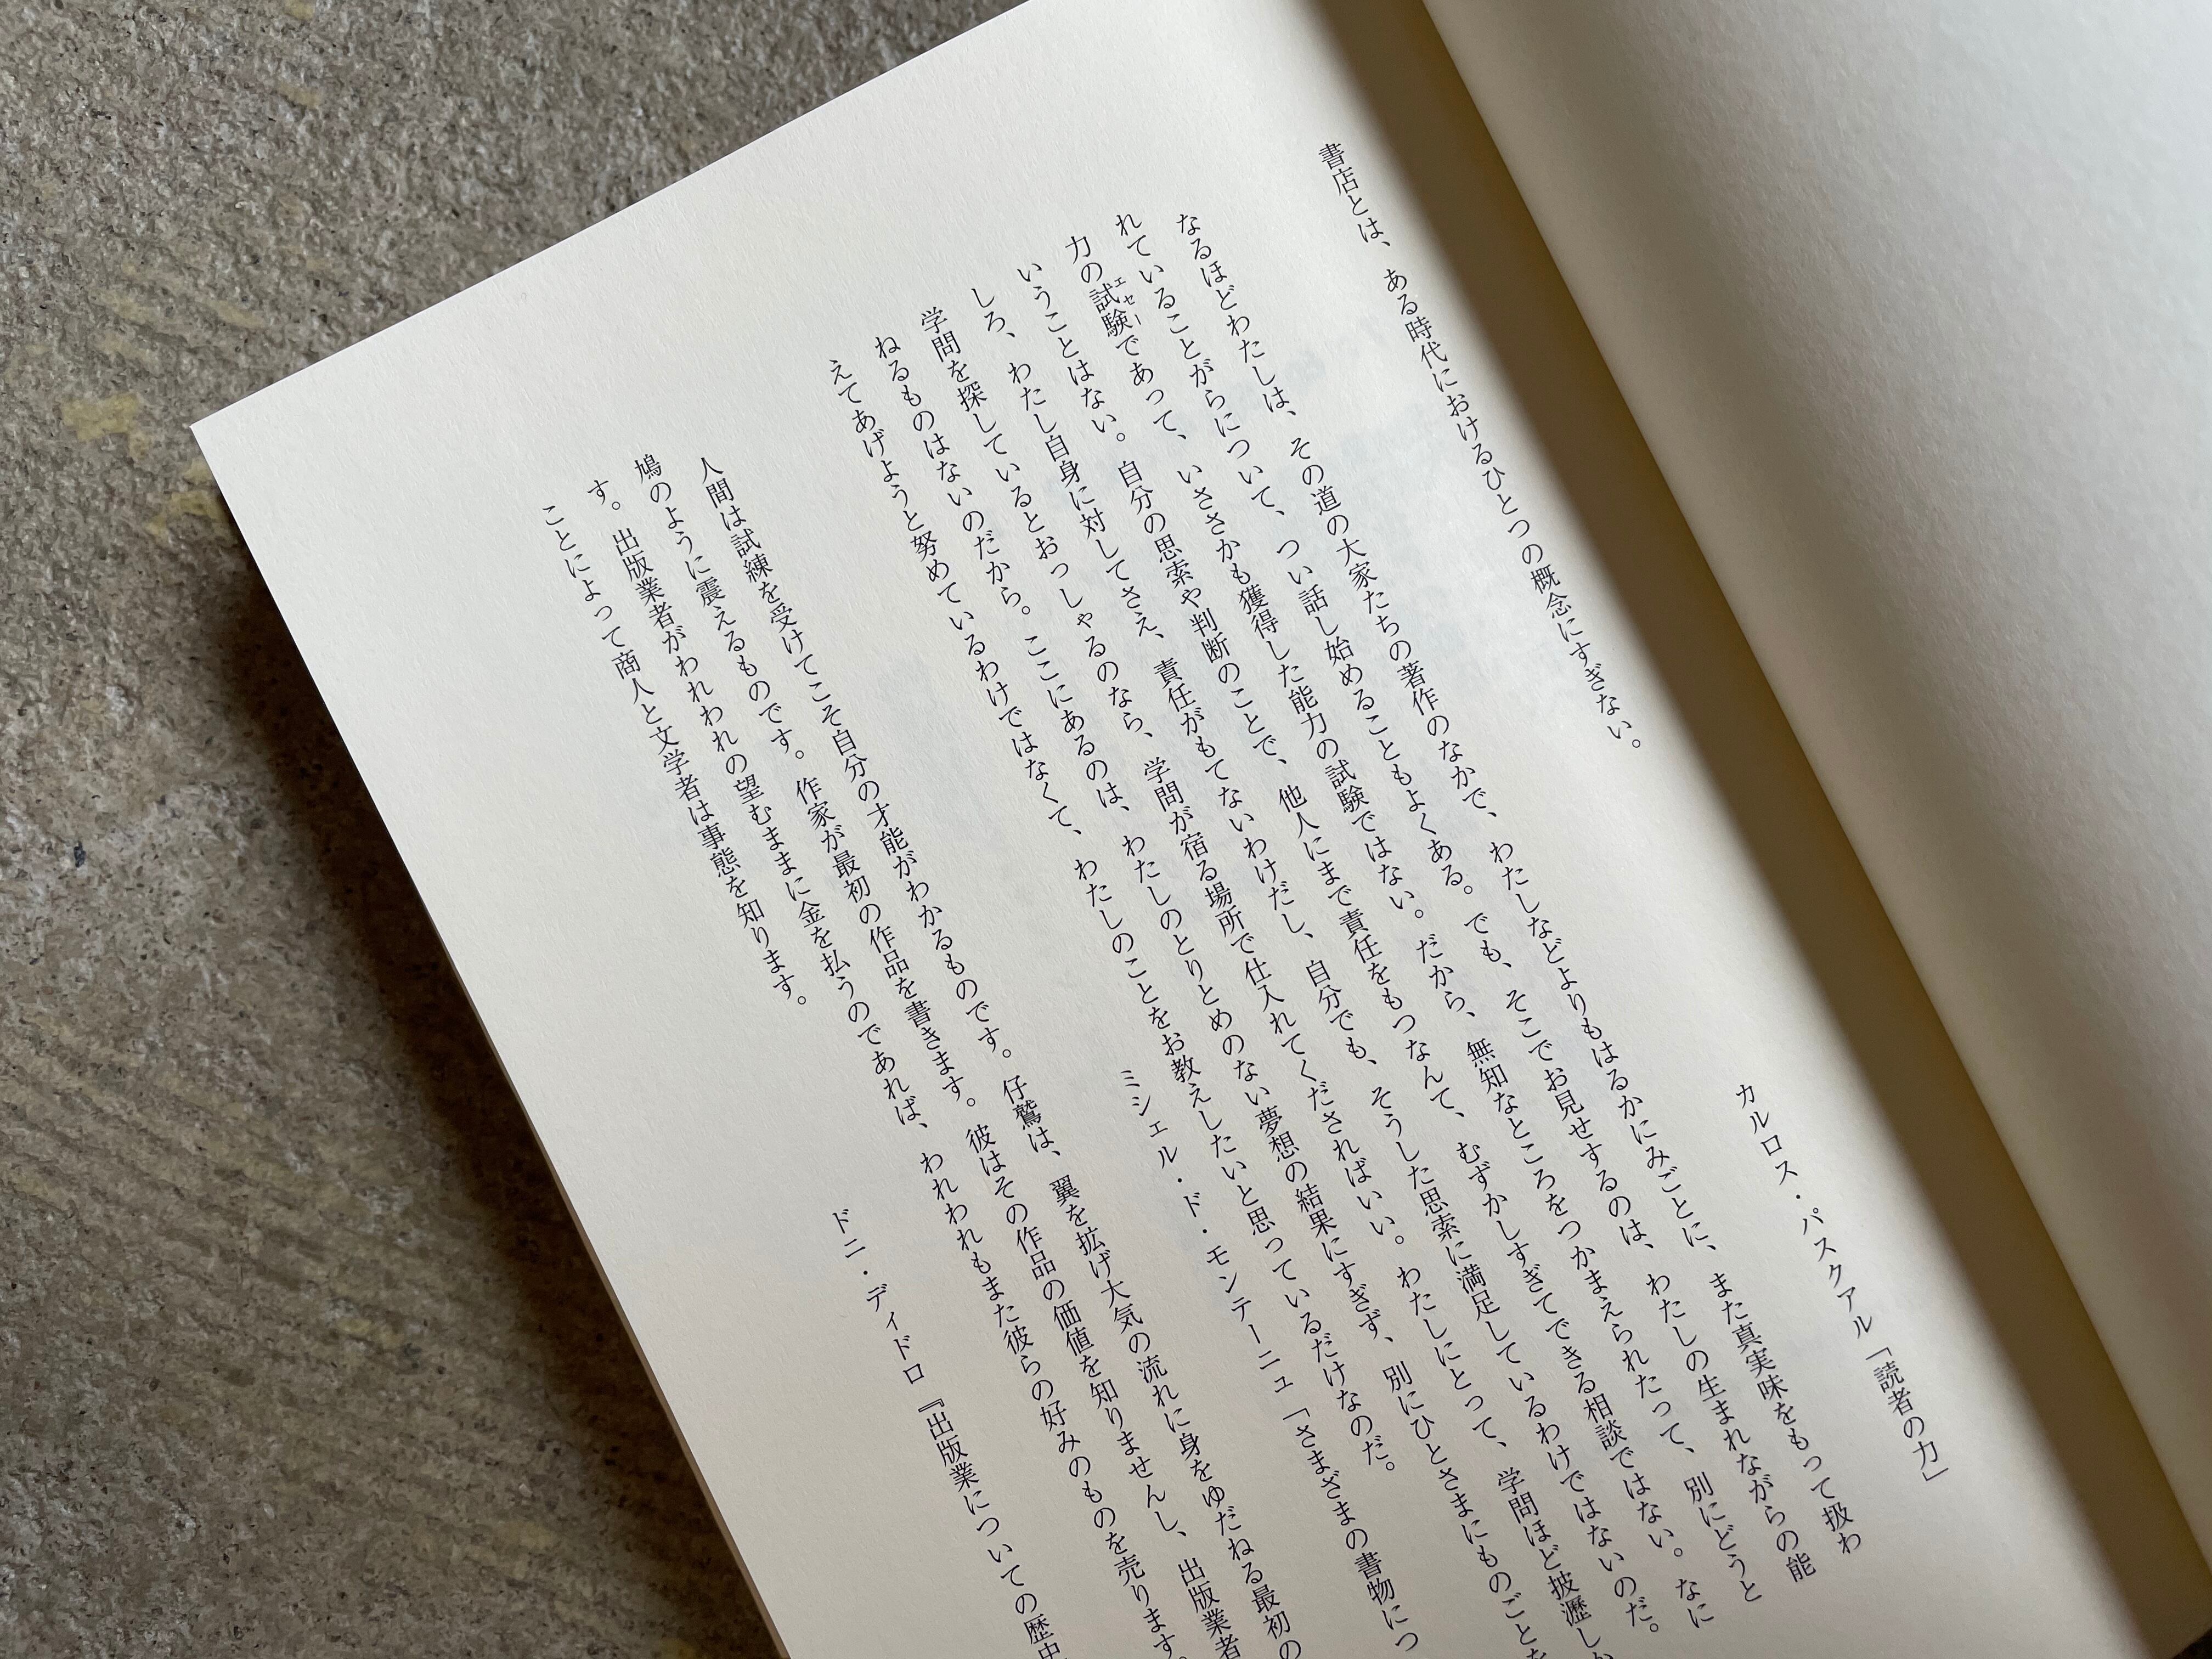 書店とは、ある時代におけるひとつの概念にすぎない。
カルロス・パスクアル「読者の力」
なるほどわたしは、その道の大家たちの著作のなかで、わたしなどよりもはるかにみごとに、また真実味をもって扱わ
れていることがらについて、つい話し始めることもよくある。でも、そこでお見せするのは、わたしの生まれながらの能
エセー
力の試験であって、いささかも獲得した能力の試験ではない。だから、無知なところをつかまえられたって、別にどうと
いうことはない。自分の思索や判断のことで、他人にまで責任をもつなんて、むずかしすぎてできる相談ではない。なに
しろ、わたし自身に対してさえ、責任がもてないわけだし、自分でも、そうした思索に満足しているわけではないのだ。
学問を探しているとおっしゃるのなら、学問が宿る場所で仕入れてくださればいい。わたしにとって、学問ほど披瀝しか
ねるものはないのだから。ここにあるのは、わたしのとりとめのない夢想の結果にすぎず、別にひとさまにものごとを
えてあげようと努めているわけではなくて、わたしのことをお教えしたいと思っているだけなのだ。
ミシェル・ド・モンテーニュ「さまざまの書物につ
人間は試練を受けてこそ自分の才能がわかるものです。仔鷲は、翼を拡げ大気の流れに身をゆだねる最初の
鳩のように震えるものです。作家が最初の作品を書きます。彼はその作品の価値を知りませんし、出版業者
す。出版業者がわれわれの望むままに金を払うのであれば、われわれもまた彼らの好みのものを売ります。
ことによって商人と文学者は事態を知ります。
ドニ・ディドロ『出版業についての歴史